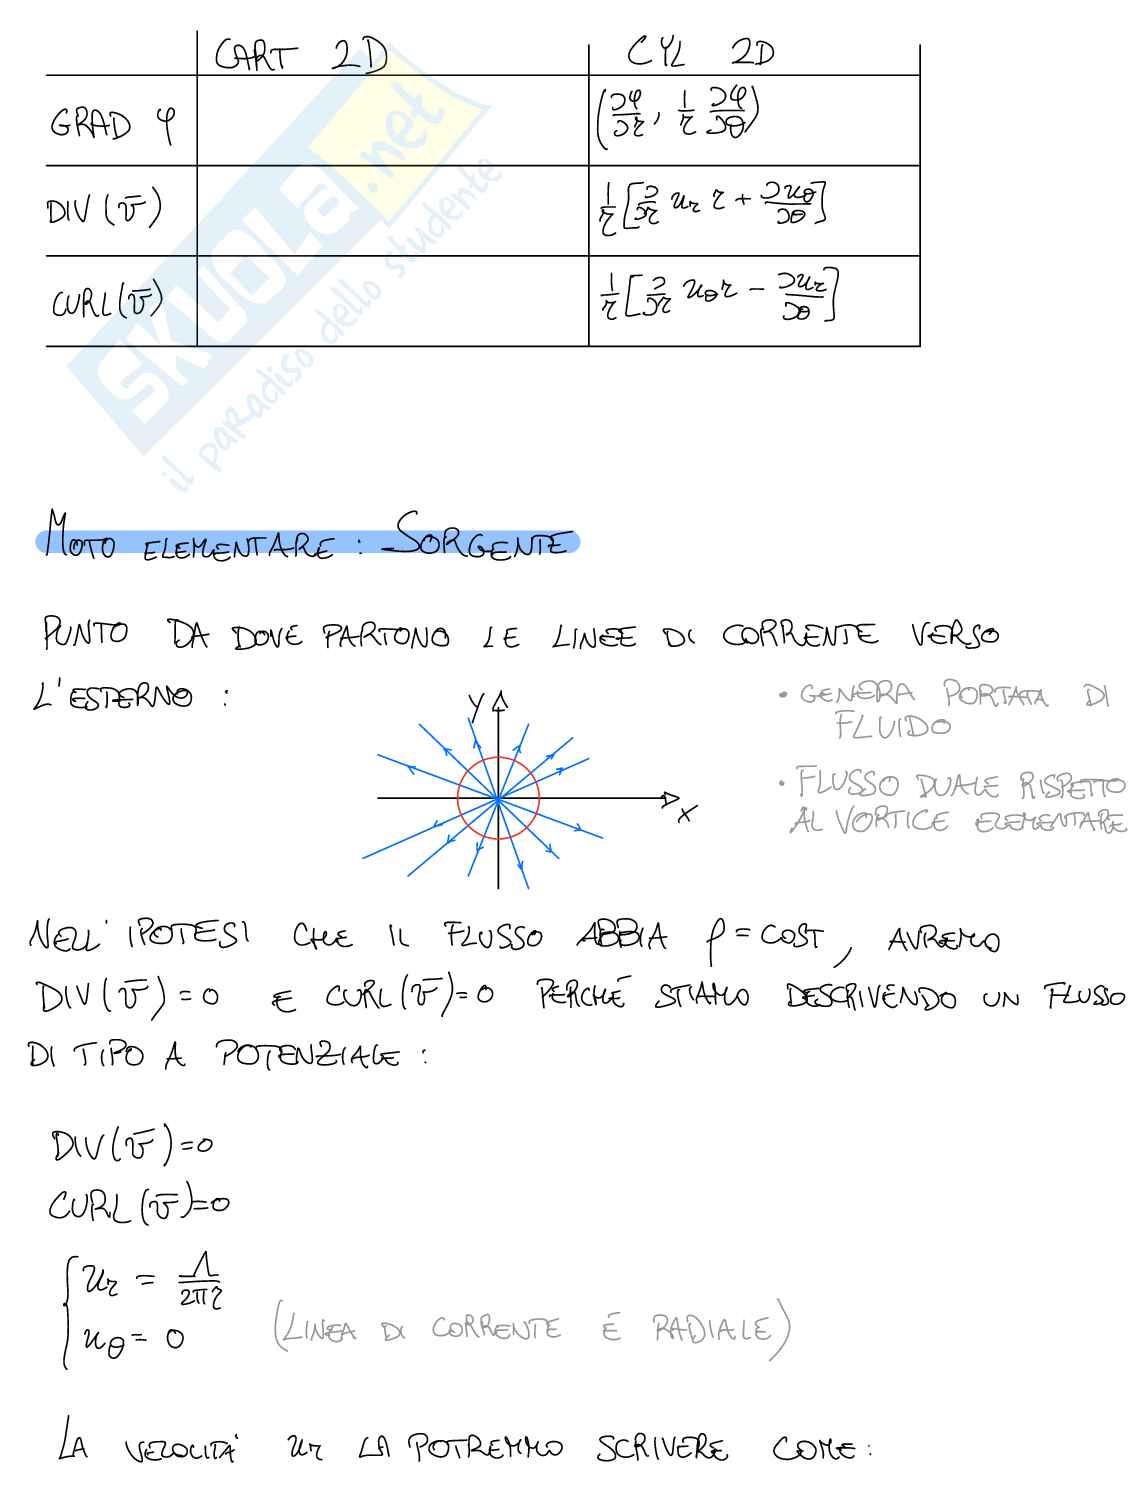 CART 2D CYL 2D
GRAD φ (∂φ/∂r, 1/r ∂φ/∂θ)
DIV(v̄) 1/r [∂/∂r u_r r + ∂u_θ/∂θ]
CURL(v̄) 1/r [∂/∂r u_θ r − ∂u_r/∂θ]
SKUOLA.net
il paradiso dello studente
MOTO ELEMENTARE : SORGENTE
PUNTO DA DOVE PARTONO LE LINEE DI CORRENTE VERSO
L'ESTERNO :
y
x
• GENERA PORTATA DI
FLUIDO
• FLUSSO DUALE RISPETTO
AL VORTICE ELEMENTARE
NELL'IPOTESI CHE IL FLUSSO ABBIA ρ = COST, AVREMO
DIV(v̄) = 0 E CURL(v̄) = 0 PERCHÉ STIAMO DESCRIVENDO UN FLUSSO
DI TIPO A POTENZIALE :
DIV(v̄) = 0
CURL(v̄) = 0
{ u_r = Λ/2πr
u_θ = 0 (LINEA DI CORRENTE È RADIALE)
LA VELOCITÀ u_r LA POTREMMO SCRIVERE COME :